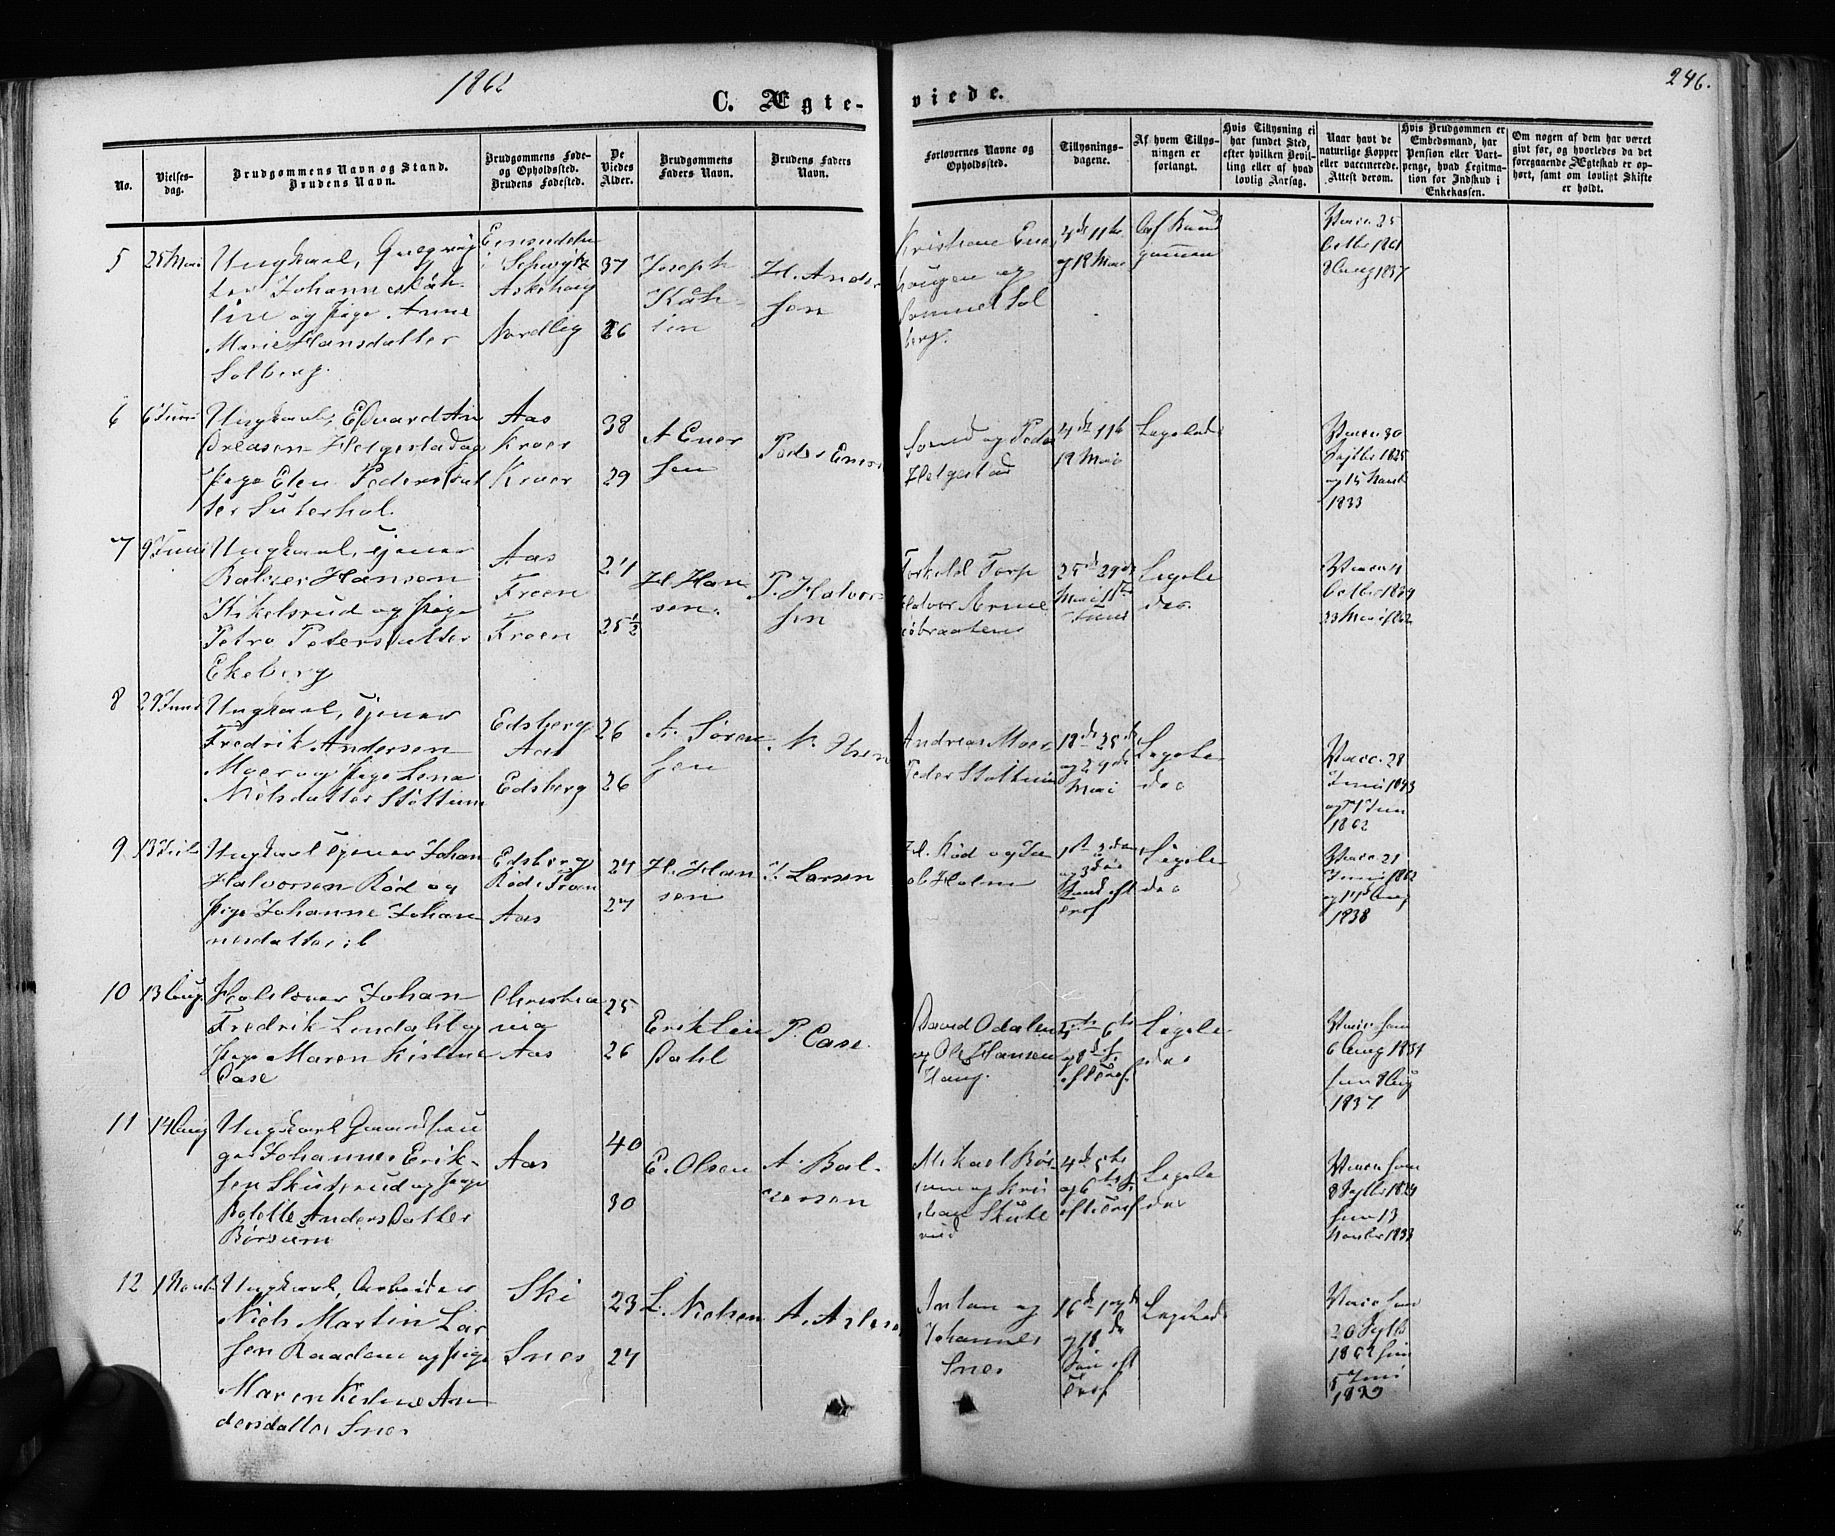 1862
246.
C. Ægte-
viede.
No.
Vielses-
dag.
Brudgommens Navn og Stand.
Brudens Navn.
Brudgommens Føde-
og Opholdssted.
Brudens Fødested.
De
Viedes
Alder.
Brudgommens
Faders Navn.
Brudens Faders
Navn.
Forlovernes Navne og
Opholdssted.
Tillysnings-
dagene.
Af hvem Tillys-
ningen er
forlangt.
Hvis Tillysning ei
har fundet Sted,
efter hvilken Bevil-
ling eller af hvad
lovlig Aarsag.
Naar havt de
naturlige Kopper
eller vaccinerede.
Attest derom.
Hvis Brudgommen er
Embedsmand, har
Pension eller Vart-
penge, hvad Legitma-
tion for Indskud i
Enkekassen.
Om nogen af dem har været
givt før, og hvorledes da det
foregaaende Ægteskab er op-
hørt, samt om lovligt Skifte
er holdt.
5
25 Mai
Ungkarl,
Johannes Käh-
lin og Pige Anne
Marie Hansdatter
Solberg.
i Schweitz
Nordbig
37
26
Joseph
Käh-
lin
H. Ander
sen
Kristian
haugen og
Sol
berg.
4de 11te
og 18 Mai
Af Brud
gommen
Vacc. 25
Octbr 1861
8 Aug 1837
6
6 Juni
Ungkarl, Edvard An
dreasen Helgestad og
Pige Elen Pedersdat
ter Süterhol.
Aas
Kroer
Kroer
38
29
A Ener
sen
Peder Enersen
og Peder
Helgestad
4de 11te
18 Mai
Ligeledes
Vacc. 30
Septbr 1825
og 15 Novbr
1833
7
9 Juni
Ungkarl, Tjener
Baltzer Hansen
Kikelsrud og Pige
Petra Petersdatter
Ekeberg
Aas
Froen
Froen
24
25 1/2
H. Han
sen.
P. Halvor
sen
Torkeld Torp
Halvor Arme
nöbraaten
25de 29de
Mai 1ste
Juni
Ligele
des
Vacc. 4
Octbr 1839
23 Mai 1862
8
29 Juni
Ungkarl, Tjener
Fredrik Andersen
Moer og Pige Lena
Nilsdatter Stöttum
Edsberg
Aas
Edsberg
26
26
A. Sören
sen
N. Ilsen
Andreas Moer
Peder Stöttum
18de 25de
og 29de
Mai
Ligele
des
Vacc. 28
Juni 1843
og 1 Jun
1862
9
13 Juli
Ungkarl Tjener Johan
Halvorsen Röd og
Pige Johanne Johan
nesdatter
Edsberg
Röd i Froen
Aas
24
27
H. Han
sen
J. Larsen
H. Röd og Ja
cob Holm
1ste 2den
og 3die
Sönd eft
Tref
Ligele
des
Vacc. 21
Juni 1862
og 14de Aug
1838
10
13 Aug.
Johan
Fredrik Lindahl og
Pige Maren Kistine
Aase
Christia
nia
Aas
25
26
Erik Lin
Dahl
P. Aase.
David Odalen
og Ole Hansen
Haug.
5te 6te
og 8de S.
eft Tref.
Ligele
des
Vacc. hun
6 Aug 1837
hun 8 Aug
1837
11
14 Aug
Ungkarl Gaardbru
ger Johannes Erik-
sen Skuterud og Pige
Bolette Andersdatter
Börsum
Aas
40
30
E. Olsen
A. Bal-
tzersen
Mikael Bör-
sum og Kri
stian Skute
rud
4de 5te
og 6te S.
eft Tref
Ligele
des
Vacc. han
8 Septbr 1824
hun 13
Novbr 1833
12
1 Novbr
Ungkarl, Arbeider
Niels Martin Lar
sen Raadem og Pige
Maren Kistine An
dersdatter Snes
Ski
Snes
23
24
L. Nielsen
A. Aslesen
Anton og
Johannes
Snes
16de 17de
og 18de
Sön eft
Tref
Ligeledes
Vacc. han
20 Septb
1862 hun
5 Juni
1839